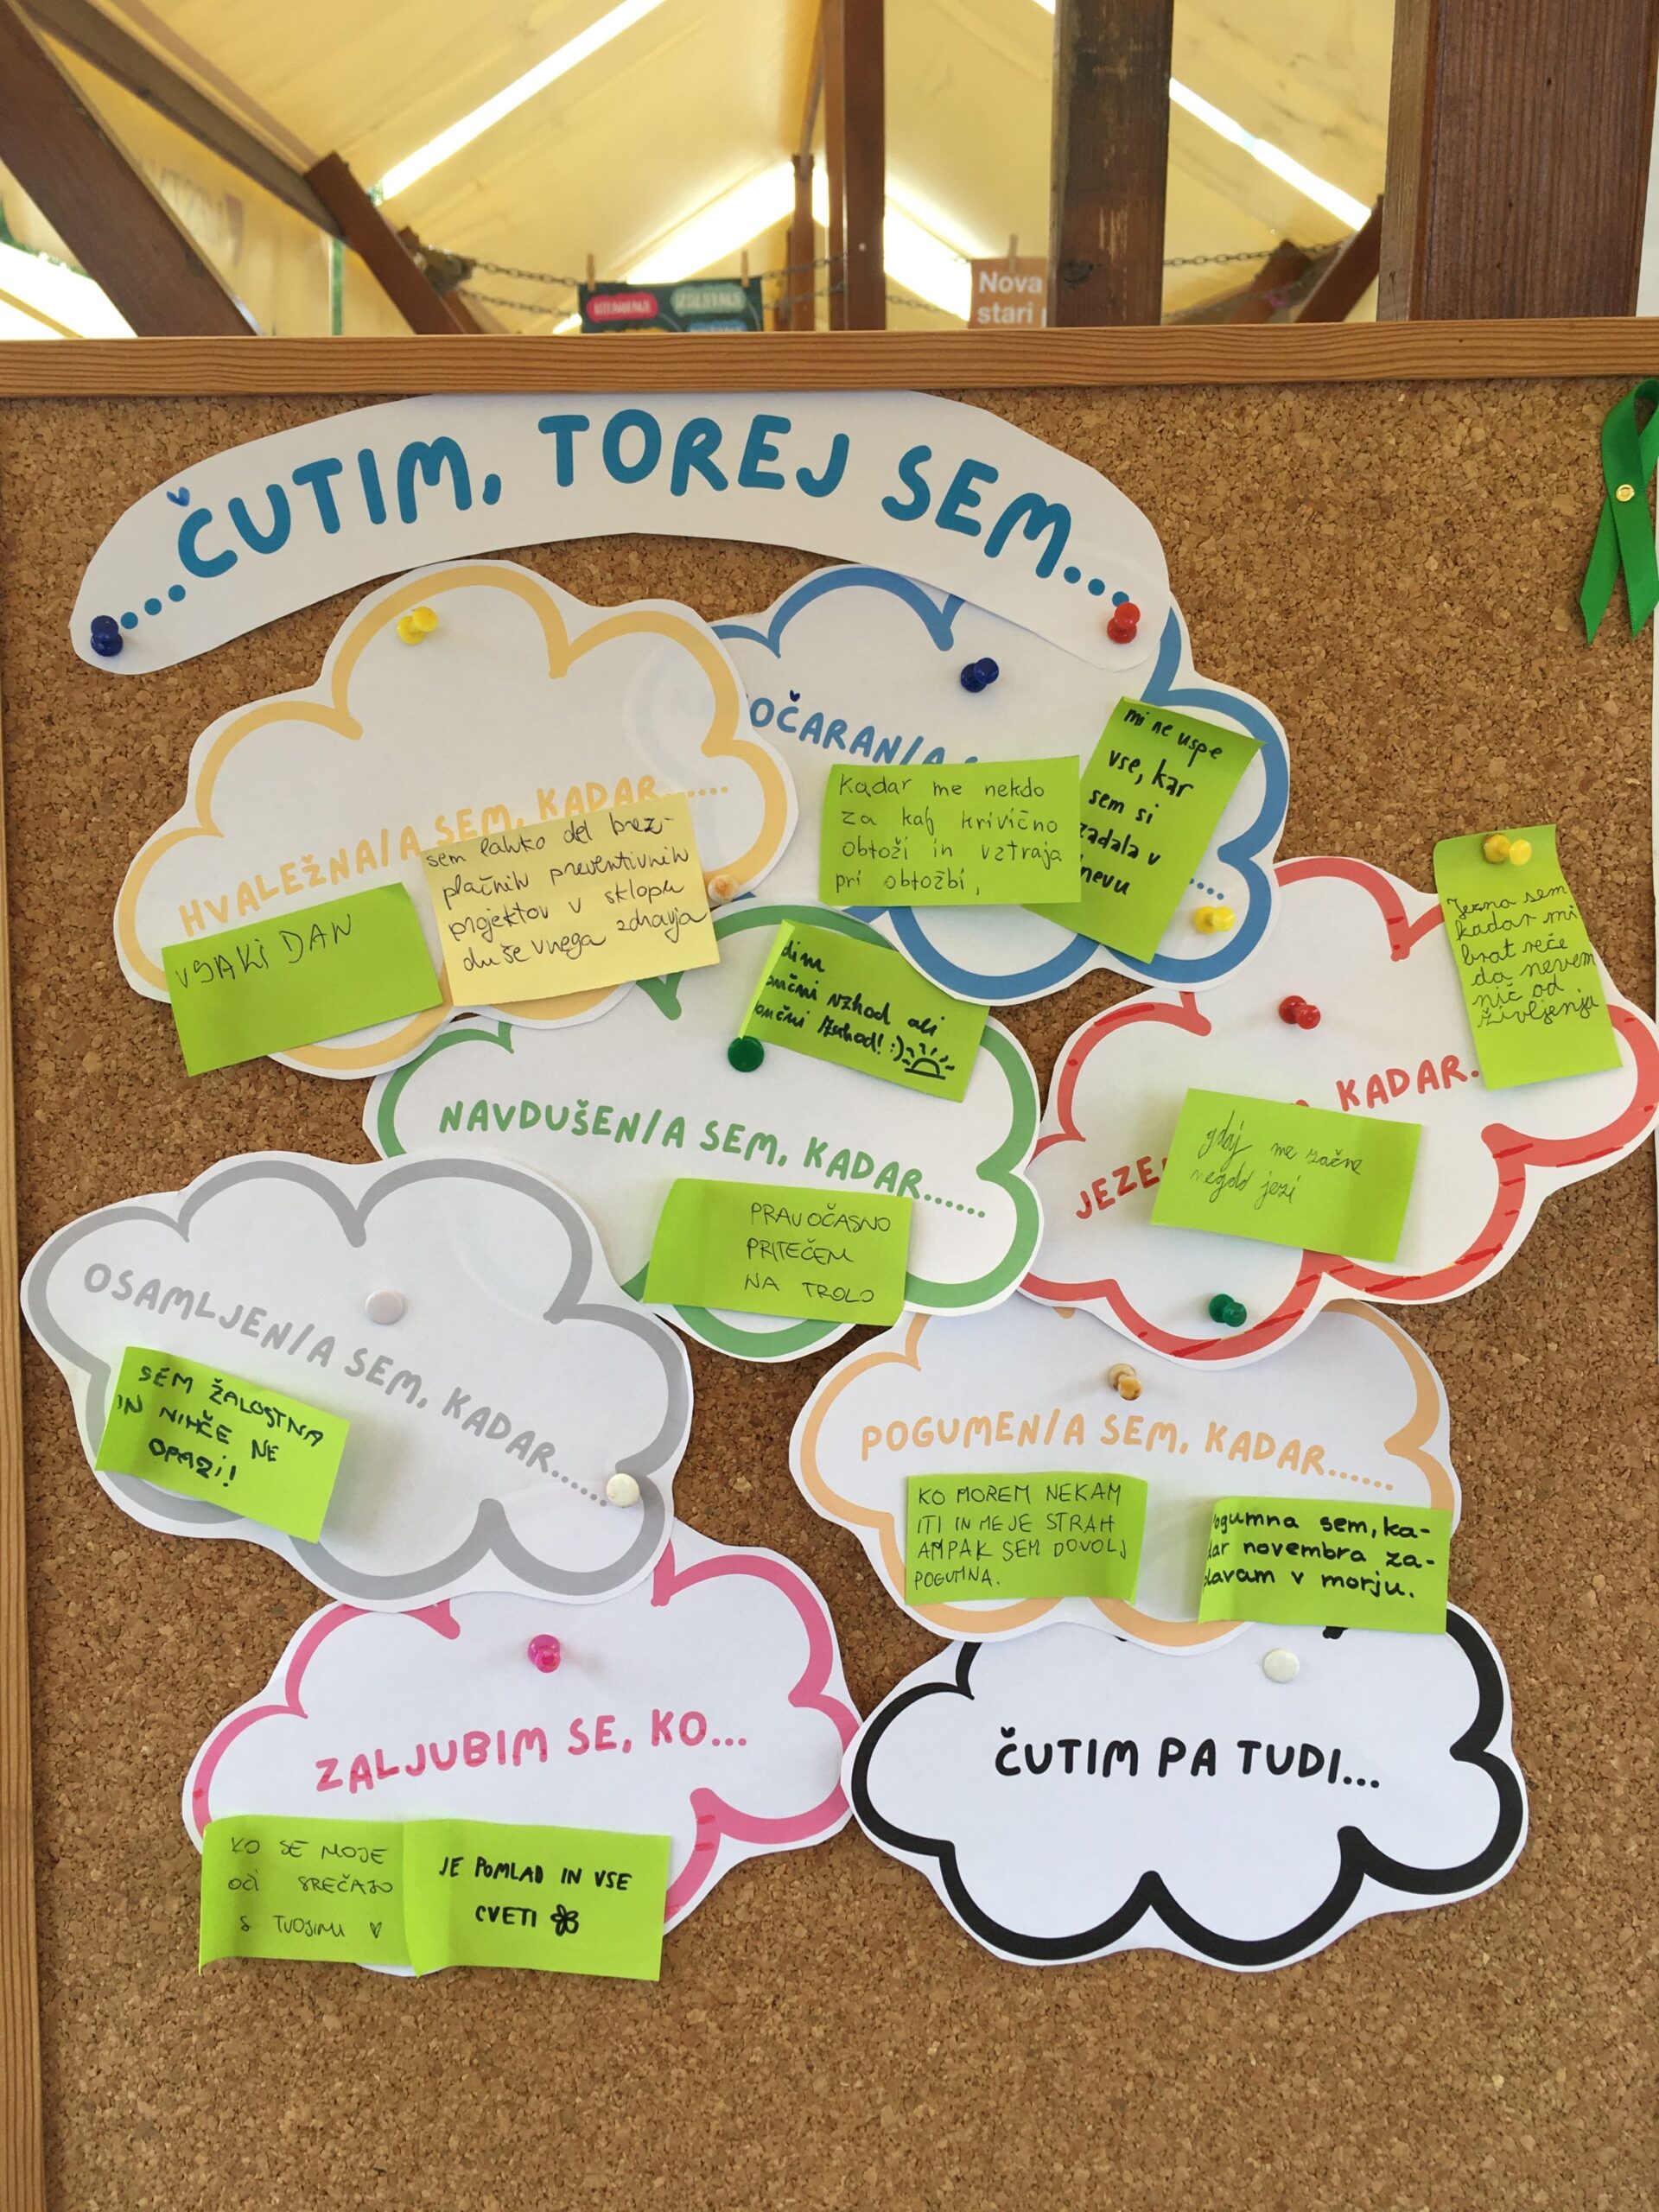 Nova
stari
...ČUTIM, TOREJ SEM...
HVALEŽNA/A SEM, KADAR......
VSAKI DAN
sem lahko del brez-
plačnih preventivnih
projektov v sklopu
duševnega zdravja
OČARAN/A
Kadar me nekdo
za kaj krivično
obtoži in vztraja
pri obtožbi,
mi ne uspe
vse, kar
sem si
zadala v
dnevu
NAVDUŠEN/A SEM, KADAR......
vzhod ali
zahod! :)
PRAVOČASNO
PRITEČEM
NA TROLO
JEZE
KADAR.
Jezna sem
kadar mi
brat reče
da nevem
nič od
življenja
gdaj me začne
negdo jezi
OSAMLJEN/A SEM, KADAR......
SEM ŽALOSTNA
IN NIHČE NE
OPAZI!
POGUMEN/A SEM, KADAR......
KO MOREM NEKAM
ITI IN ME JE STRAH
AMPAK SEM DOVOLJ
POGUMNA.
ogumna sem, ka-
dar novembra za-
plavam v morju.
ZALJUBIM SE, KO...
KO SE MOJE
OČI SREČAJO
S TVOJIMI ♡
JE POMLAD IN VSE
CVETI
ČUTIM PA TUDI...